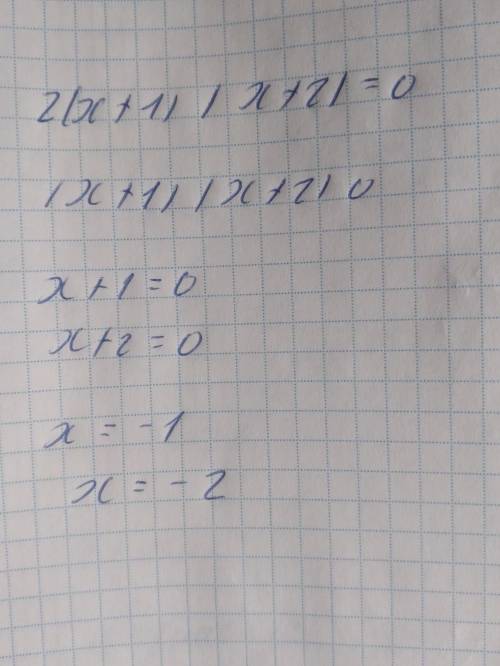 2(x+1)(x+2)=0
(x+1)(x+2)0
x+1=0
x+2=0
x=-1
x=-2